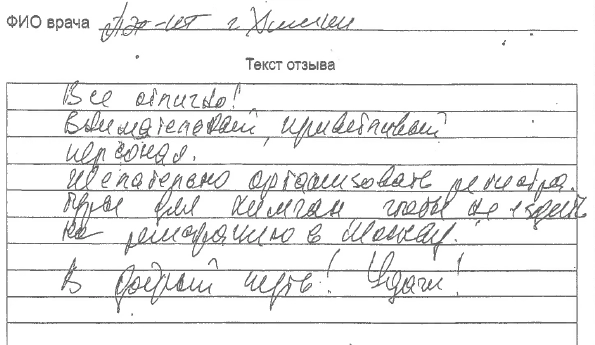 ФИО врача г Химки
Текст отзыва
Все отлично!
Внимательный, приветливый
персонал.
Желательно организовать регистра-
туру для химчан чтобы не ездить
на в Москву.
В добрый путь! Удачи!